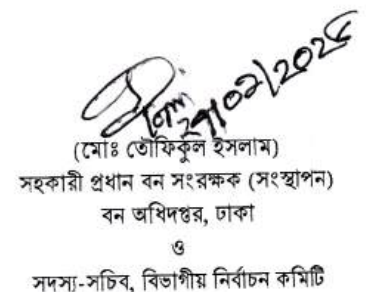 ২৭/০২/২০২৫
(মোঃ তৌফিকুল ইসলাম)
সহকারী প্রধান বন সংরক্ষক (সংস্থাপন)
বন অধিদপ্তর, ঢাকা
ও
সদস্য-সচিব, বিভাগীয় নির্বাচন কমিটি